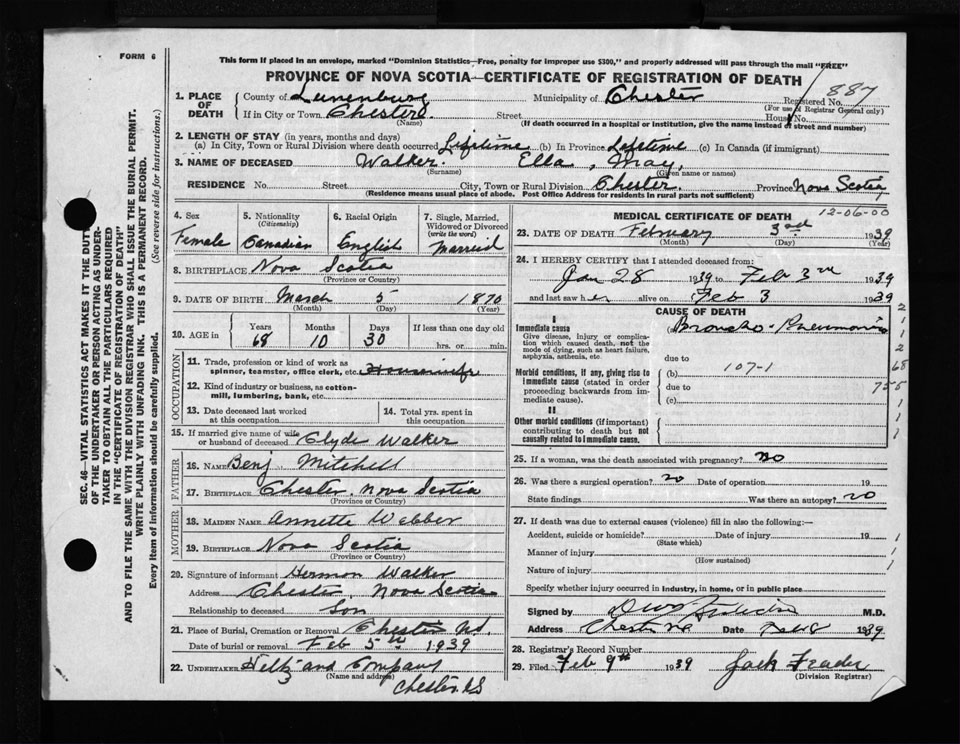 FORM 6
This form if placed in an envelope, marked "Dominion Statistics—Free, penalty for improper use $300," and properly addressed will pass through the mail "FREE"
PROVINCE OF NOVA SCOTIA—CERTIFICATE OF REGISTRATION OF DEATH
887
1. PLACE OF DEATH { County of Lunenburg Municipality of Chester Registered No.
(For use of Registrar General only)
If in City or Town Chester (Name) Street House No.
(If death occurred in a hospital or institution, give the name instead of street and number)
2. LENGTH OF STAY (in years, months and days)
(a) In City, Town or Rural Division where death occurred Lifetime (b) In Province Lifetime (c) In Canada (if immigrant)
3. NAME OF DECEASED Walker. Ella, May,
(Surname) (Given name or names)
RESIDENCE No. Street City, Town or Rural Division Chester. Province Nova Scotia
(Residence means usual place of abode. Post Office Address for residents in rural parts not sufficient)
4. Sex
Female
5. Nationality
(Citizenship)
Canadian
6. Racial Origin
English
7. Single, Married, Widowed or Divorced
(write the word)
Married
8. BIRTHPLACE Nova Scotia
(Province or Country)
9. DATE OF BIRTH March 5 1870
(Month) (Day) (Year)
10. AGE in { Years Months Days If less than one day old
68 10 30 hrs. or min.
OCCUPATION
11. Trade, profession or kind of work as spinner, teamster, office clerk, etc. Housewife
12. Kind of industry or business, as cotton-mill, lumbering, bank, etc.
13. Date deceased last worked at this occupation
14. Total yrs. spent in this occupation
15. If married give name of wife or husband of deceased Clyde Walker
FATHER
16. NAME Benj Mitchell
17. BIRTHPLACE Chester, Nova Scotia
(Province or Country)
MOTHER
18. MAIDEN NAME Annette Webber
19. BIRTHPLACE Nova Scotia
(Province or Country)
20. Signature of informant Hermon Walker
Address Chester, Nova Scotia
Relationship to deceased Son
21. Place of Burial, Cremation or Removal Chester NS.
Date of burial or removal Feb 5th 1939
22. UNDERTAKER and Company
(Name and address)
Chester NS
MEDICAL CERTIFICATE OF DEATH
12-06-00
23. DATE OF DEATH February 3rd 1939
(Month) (Day) (Year)
24. I HEREBY CERTIFY that I attended deceased from:
Jan 28 1939 to Feb 3rd 1939
and last saw her alive on Feb 3 1939
CAUSE OF DEATH
I
Immediate cause
Give disease, injury or complication which caused death, not the mode of dying, such as heart failure, asphyxia, asthenia, etc.
(a) Broncho-Pneumonia
due to
Morbid conditions, if any, giving rise to immediate cause (stated in order proceeding backwards from immediate cause).
(b) 107-1
due to
(c)
II
Other morbid conditions (if important) contributing to death but not causally related to immediate cause.
2
1
1
2
68
755
1
1
1
25. If a woman, was the death associated with pregnancy? No
26. Was there a surgical operation? no Date of operation 19
State findings Was there an autopsy? no
27. If death was due to external causes (violence) fill in also the following:—
Accident, suicide or homicide? Date of injury 19
(State which)
Manner of injury
(How sustained)
Nature of injury
Specify whether injury occurred in industry, in home, or in public place
1
1
1
Signed by M.D.
Address Chester NS Date Feb 8 1939
28. Registrar's Record Number
29. Filed Feb 9th 1939 Jack Frader
(Division Registrar)
SEC. 46—VITAL STATISTICS ACT MAKES IT THE DUTY OF THE UNDERTAKER OR PERSON ACTING AS UNDERTAKER TO OBTAIN ALL THE PARTICULARS REQUIRED IN THE "CERTIFICATE OF REGISTRATION OF DEATH" AND TO FILE THE SAME WITH THE DIVISION REGISTRAR WHO SHALL ISSUE THE BURIAL PERMIT.
WRITE PLAINLY WITH UNFADING INK. THIS IS A PERMANENT RECORD.
Every item of information should be carefully supplied. (See reverse side for instructions.)